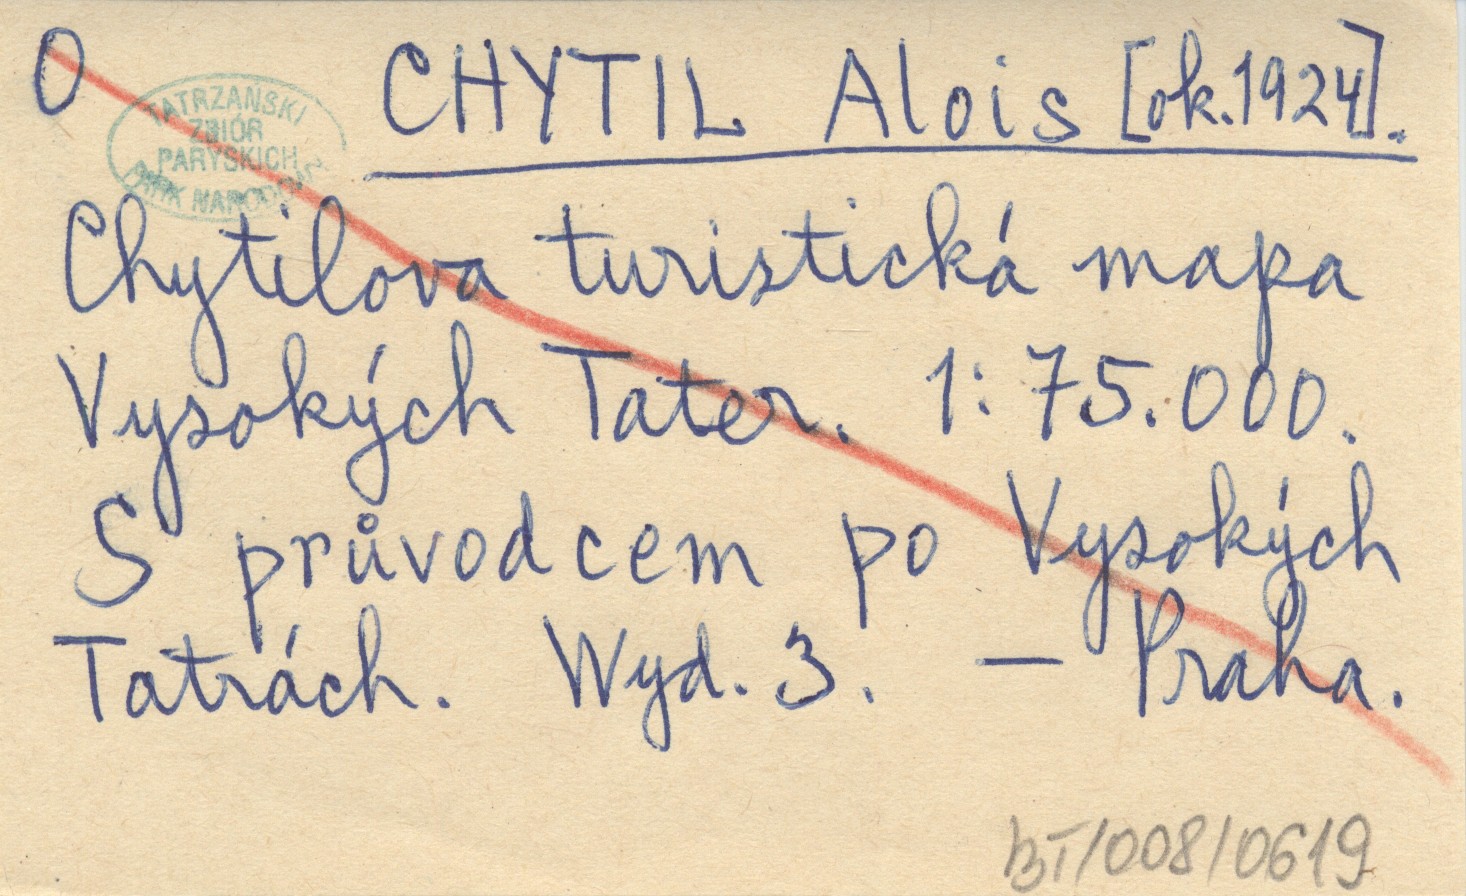 O
CHYTIL Alois [ok. 1924].
TATRZAŃSKI
ZBIÓR
PARYSKICH
PARK NARODOWY
Chytilova turistická mapa
Vysokých Tater. 1:75.000.
S průvodcem po Vysokých
Tatrách. Wyd. 3. — Praha.
BT/008/0619